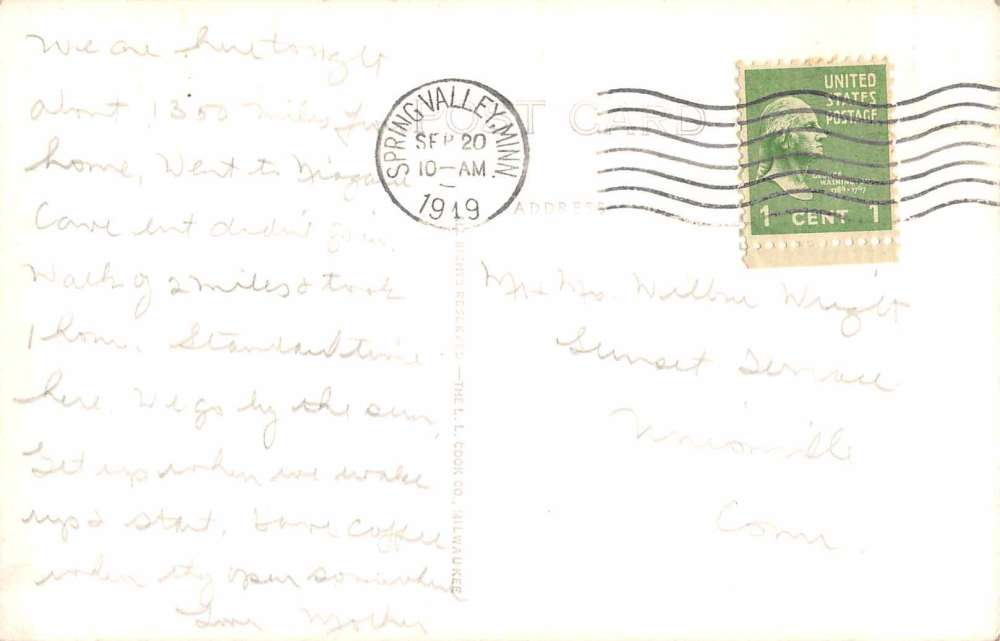 We are here tonight
about 1300 miles from
home. Went to Niagara
Cave but didn't go in.
Walk of 2 miles & took
1 hour. Standard time
here. We go by the sun,
Get up when we wake
up & start. Have coffee
when they open somewhere
Love Mother
POST CARD
ADDRESS
SPRING VALLEY, MINN.
SEP 20
10-AM
1949
UNITED
STATES
POSTAGE
GEORGE
WASHINGTON
1789-1797
1 CENT 1
RIGHTS RESERVED - THE L. L. COOK CO., MILWAUKEE
Mr & Mrs. Wilbur Wright
Sunset Terrace
Unionville
Conn.